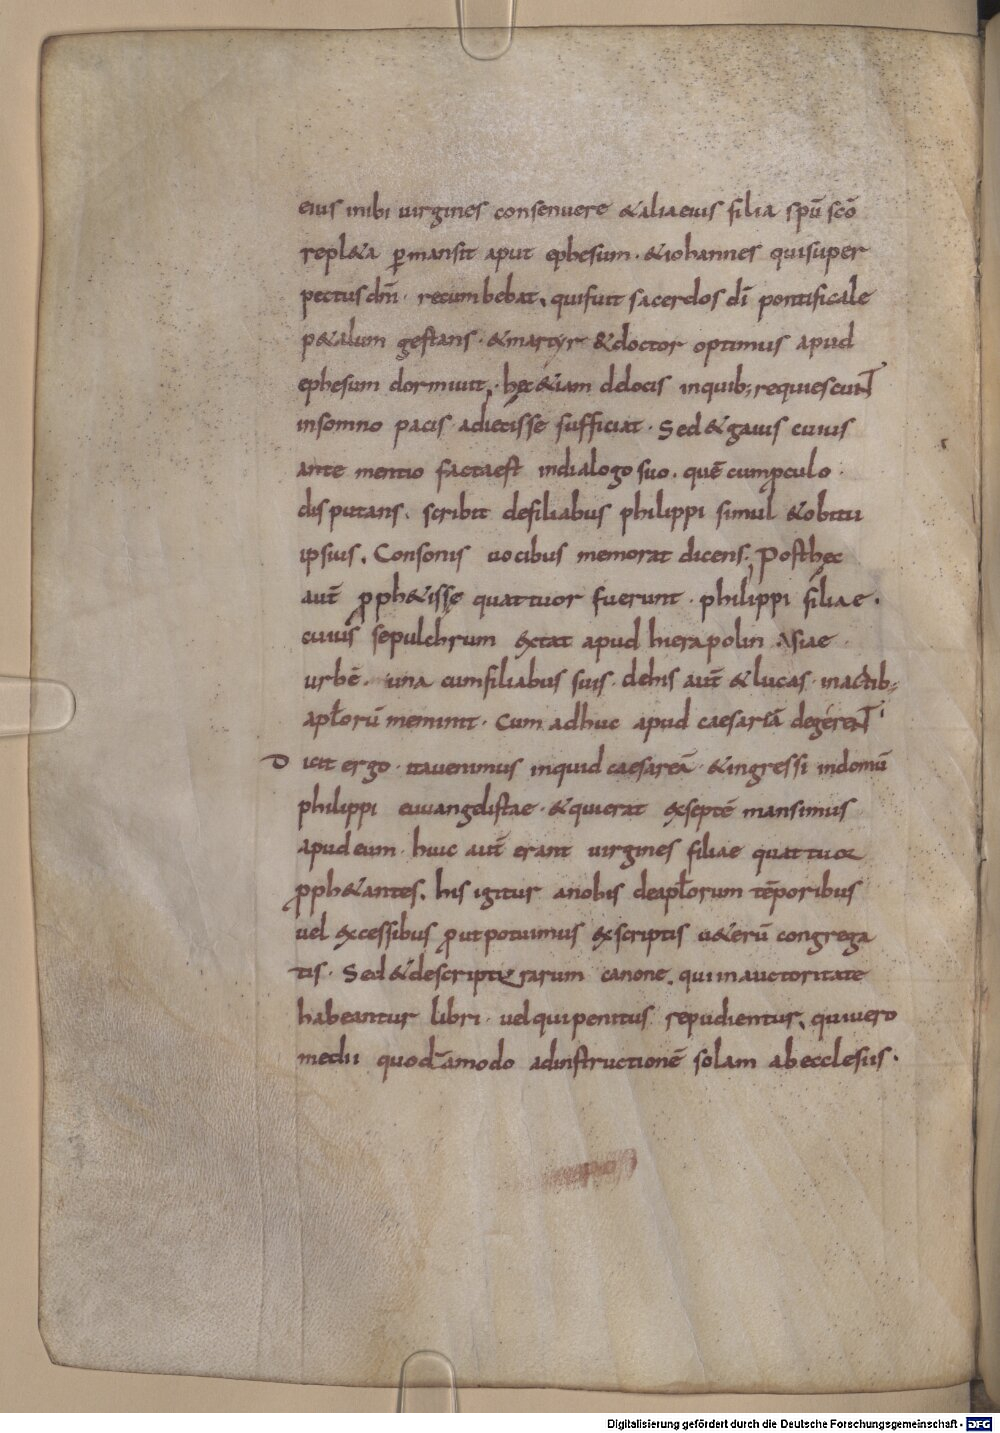 eius inibi uirgines consenuere &alia eius filia spū scō
repl&a ꝑmansit aput ephesum · &iohannes qui super
pectus dn̄i · recumbebat, qui fuit sacerdos dī pontificale
p&alum gestans · &martyr &doctor optimus apud
ephesum dormiuit, · hęc &iam de locis in quib; requiescunt̄
in somno pacis adiecisse sufficiat · Sed &gaius cuius
ante mentio facta est in dialogo suo · quē cum ꝓculo ·
disputans · scribit de filiabus philippi simul &obitu
ipsius. Consonis uocibus memorat dicens; Post hęc
aut̄ ꝓph&isse quattuor fuerunt · philippi filiae ·
cuius sepulchrum extat apud hierapolin asiae ·
urbē · una cum filiabus suis · de his aut̄ &lucas · in actib;
apl̄orū meminit · Cum adhuc apud caesariā degerent̄
Dicit ergo · ita uenimus inquid caesareā · &ingressi in domū
philippi euuangelistae · &qui erat ex septē mansimus
apud eum · huic aut̄ erant uirgines filiae quattuor
ꝓph&antes. his igitur a nobis de apl̄orum tēporibus
uel excessibus ꝓut potuimus ex scriptis u&erū congrega
tis · Sed &de scripturarum canone. qui in auctoritate
habeantur libri · uel qui penitus repudientur, qui uero
medii quodāmodo ad instructionē solam ab ecclesiis ·
Digitalisierung gefördert durch die Deutsche Forschungsgemeinschaft - DFG